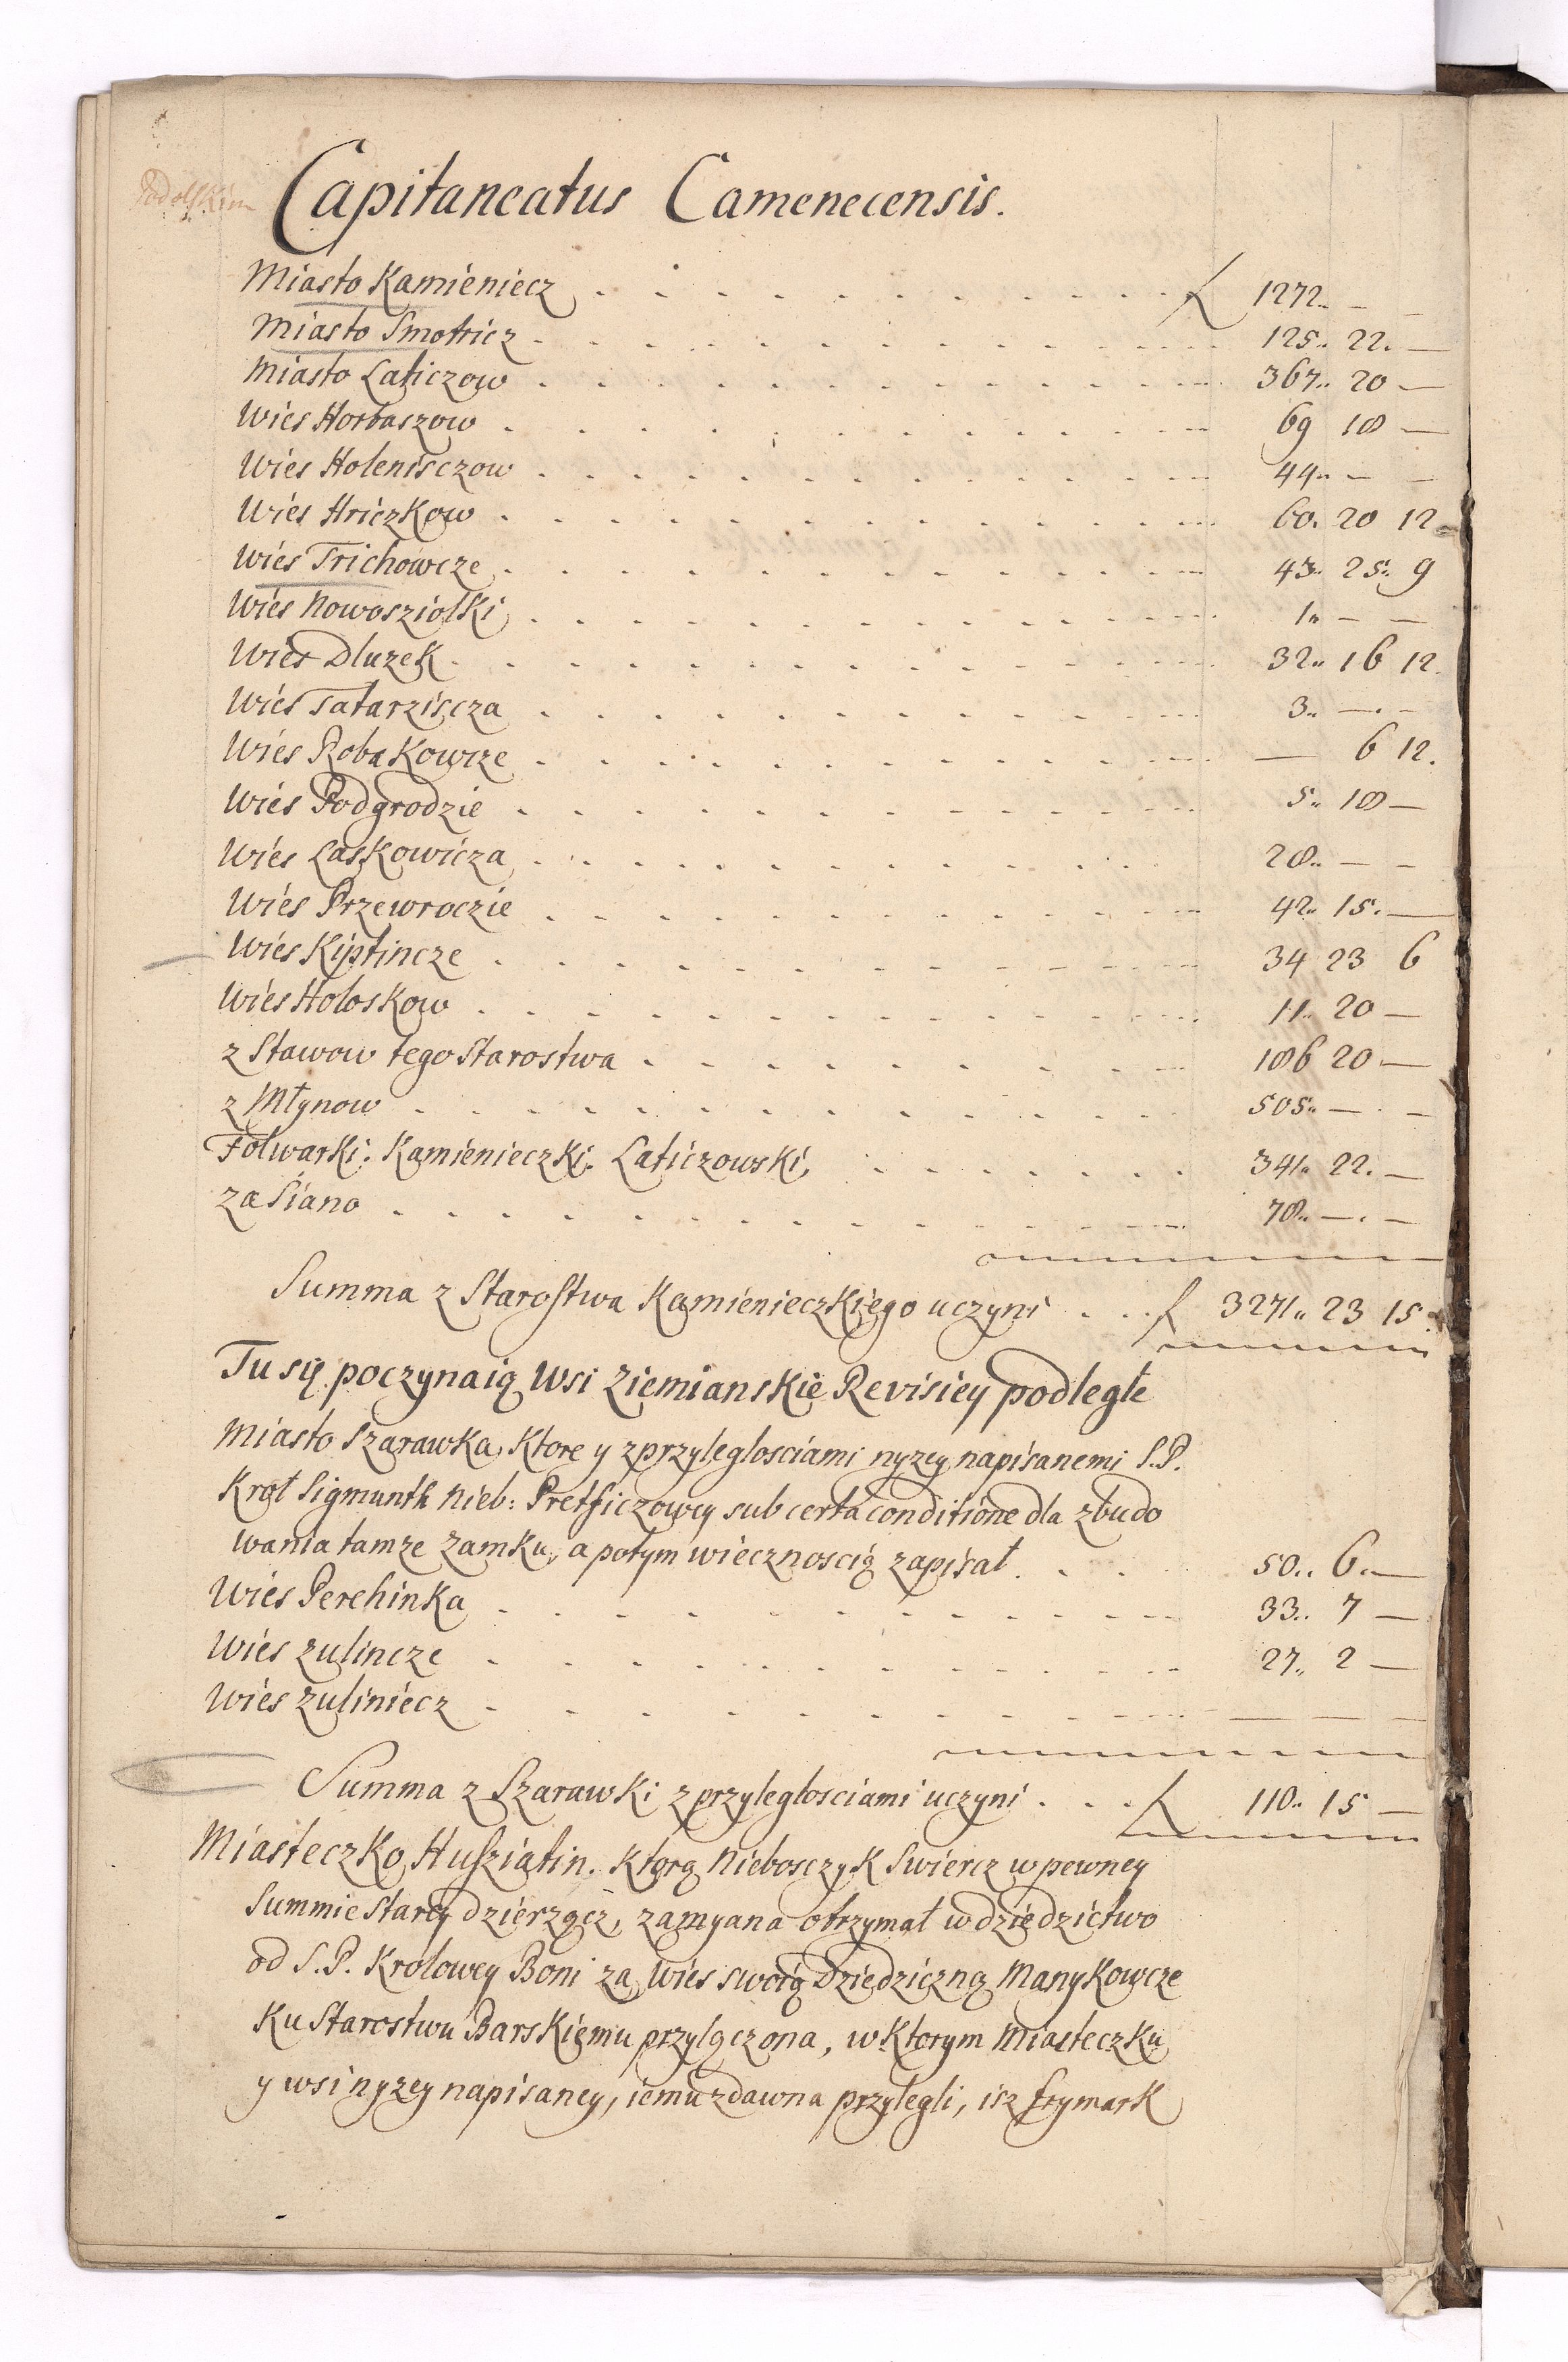 Podolskim
Capitaneatus Camenecensis.
Miasto Kamieniecz . . . . . . . . . . . f 1272.. — —
Miasto Smotricz . . . . . . . . . . . . 125.. 22. —
Miasto Laticzow . . . . . . . . . . . . 367.. 20 —
Wies Horbaszow . . . . . . . . . . . . 69 18 —
Wies Holenisczow . . . . . . . . . . . . 44.. — —
Wies Hriczkow . . . . . . . . . . . . 60. 20 12
Wies Trichowcze . . . . . . . . . . . . 43.. 25.. 9
Wies Nowosziolki . . . . . . . . . . . . 1.. — —
Wies Dluzek . . . . . . . . . . . . 32.. 16 12.
Wies Tatarziscza . . . . . . . . . . . . 3.. — —
Wies Robakowcze . . . . . . . . . . . . — 6 12.
Wies Podgrodzie . . . . . . . . . . . . 5.. 18 —
Wies Laskowicza . . . . . . . . . . . . 28.. — —
Wies Przewroczie . . . . . . . . . . . . 42.. 15. —
Wies Kiptincze . . . . . . . . . . . . 34 23 6
Wies Holoskow . . . . . . . . . . . . 11.. 20 —
z Stawow tego Starostwa . . . . . . . . . . 186 20 —
z Młynow . . . . . . . . . . . . 505.. — —
Folwarki: Kamienieczki. Laticzowski, . . . . . . 341.. 22. —
za Siano . . . . . . . . . . . . 78.. — —
Summa z Starostwa Kamienieczkiego uczyni . . . f 3271.. 23 15.
Tu się poczynaią Wsi Ziemianskie Revisiey podległe
Miasto Szarawka, Ktore y z przyległosciami nyzey napisanemi S.P.
Krol Sigmunth Nieb: Pretficzowey sub certa conditione dla zbudo
wania tamze zamku, a potym wiecznoscią zapisał. . . . 50.. 6. —
Wies Perehinka . . . . . . . . . . . . 33.. 7 —
Wies Zulincze . . . . . . . . . . . . 27.. 2 —
Wies Zuliniecz . . . . . . . . . . . . — — —
Summa z Szarawki z przyległosciami uczyni . . . f 110.. 15 —
Miasteczko Husziatin. Ktorą Niebosczyk Swiercz w pewney
Summie Starey dzierząc, zamyana otrzymał w dziedzictwo
od S.P. Krolowey Boni za Wies swoią Dziedziczną Manykowcze
Ku Starostwu Barskiemu przyłączona, w Ktorym Miasteczku
y wsi nyzey napisaney, iemu zdawna przylegli, isz frymark